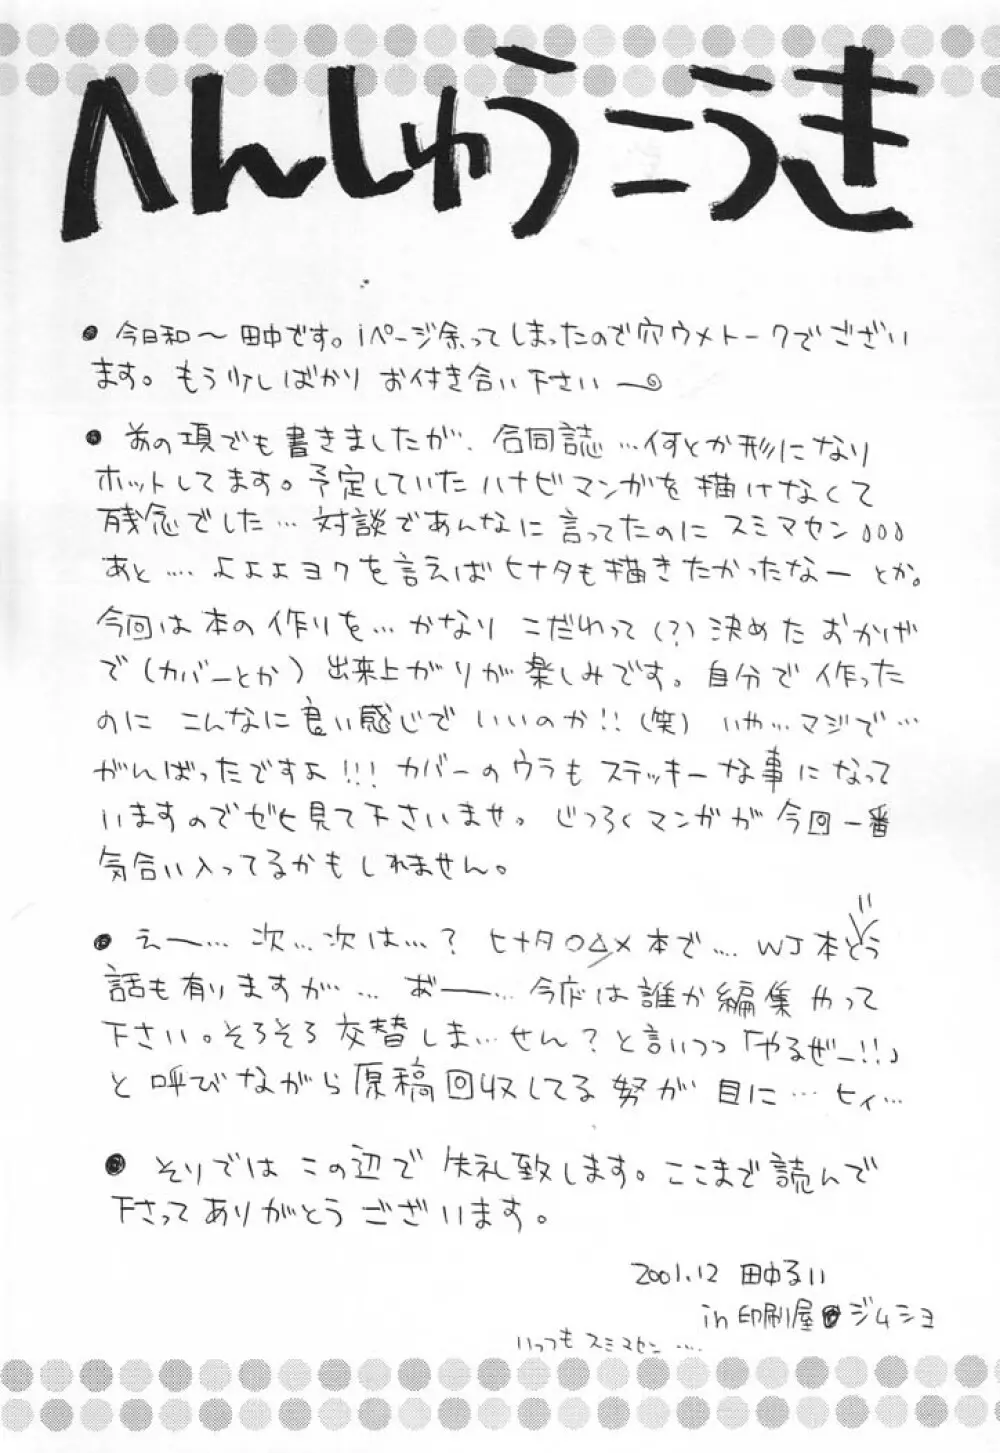 へんしゅうこうき
●今日和〜田中です。1ページ余ってしまったので穴ウメトークでござい
ます。もう少しばかりお付き合い下さい〜
●あの項でも書きましたが、合同誌…何とか形になり
ホットしてます。予定していたハナビマンガを描けなくて
残念でした…対談であんなに言ってたのにスミマセン
あと…よよよヨクを言えばヒナタも描きたかったなーとか。
今回は本の作りを…かなりこだわって(?)決めたおかげ
で(カバーとか)出来上がりが楽しみです。自分で作った
のにこんなに良い感じでいいのか!!(笑)いや…マジで…
がんばったですよ!!!カバーのウラもステッキーな事になって
いますのでぜヒ見て下さいませ。じつろくマンガが今回一番
気合い入ってるかもしれません。
●えー…次…次は…?ヒナタ○△×本で…WJ本とう"
話も有りますが…おーー…今度は誰か編集やって
下さい。そろそろ交替しま…せん?と言いつつ「やるぜー!!」
と呼びながら原稿回収してる努が目に…ヒィ…
●そりではこの辺で失礼致します。ここまで読んで
下さってありがとうございます。
2001.12 田中るい
in印刷屋●ジムショ
いっつもスミマセン…